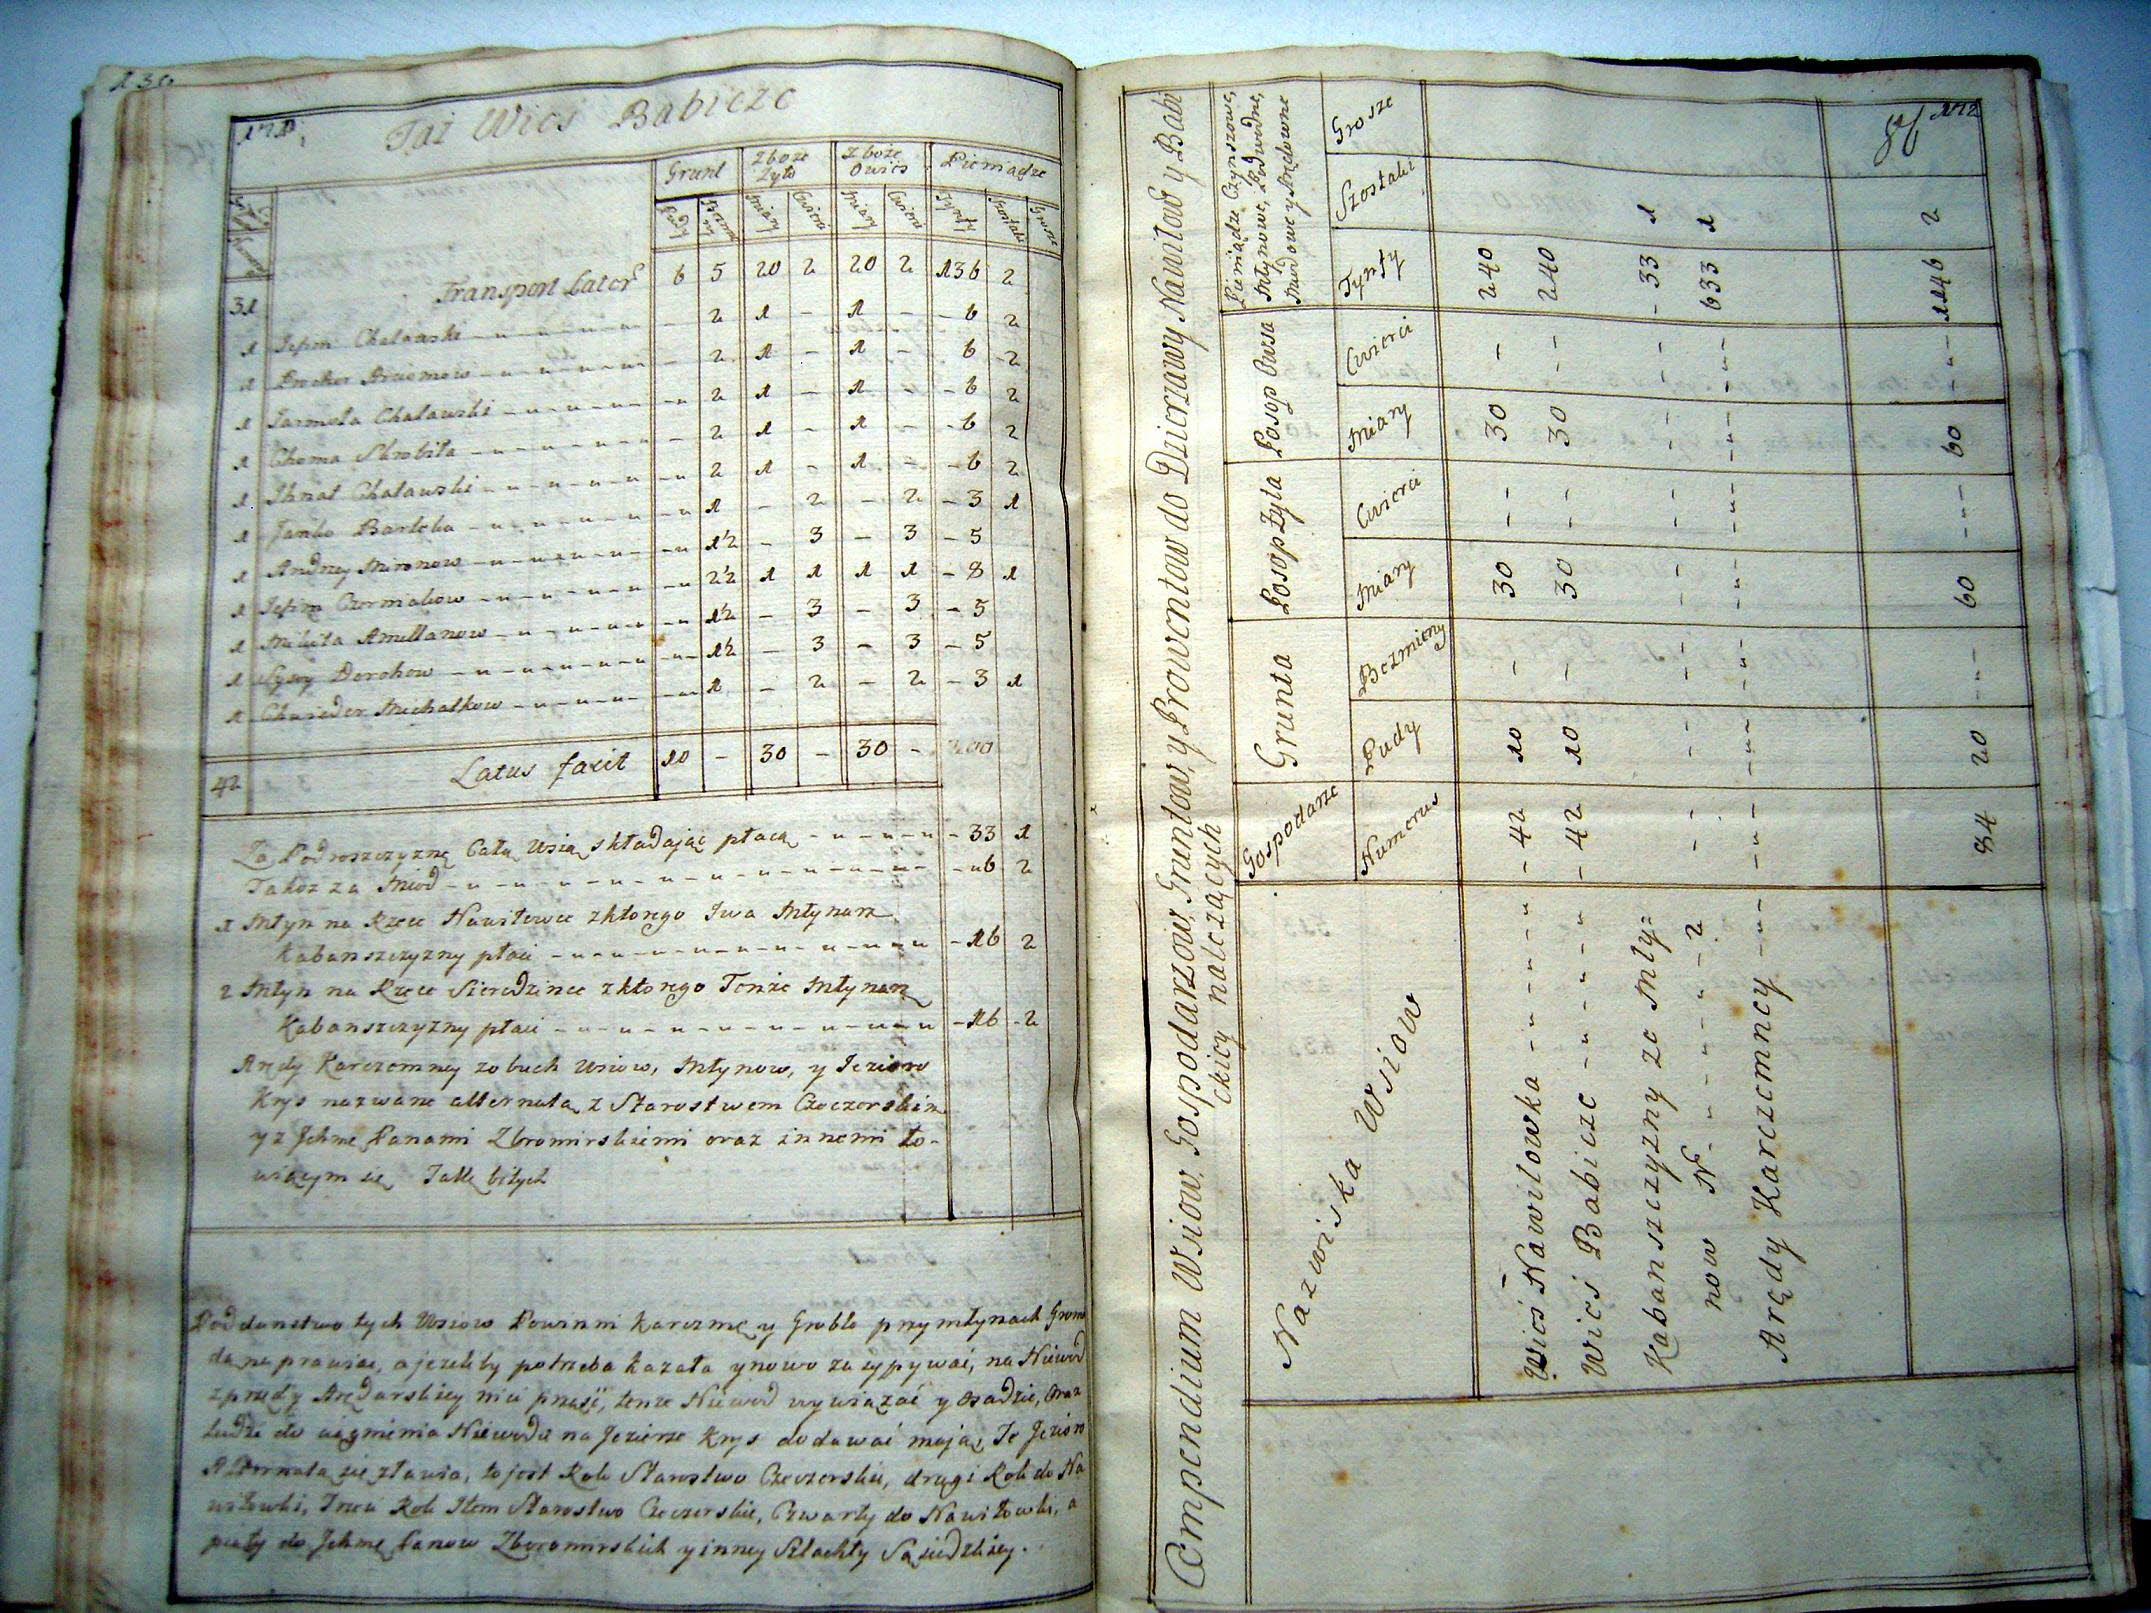 Taż Wieś Babicze
Grunt Zboże Żyto Zboże Owies Pieniądze
Pudy Miary Cwierci Miary Cwierci Tynfy Szostaki Grosze
31 Transport Lateris 6 5 20 2 20 2 136 2
1 Jefim Chalauski 2 1 - 1 - - 6 2
1 Prokor Arciomow 2 1 - 1 - 6 - 2
1 Jarmoła Chalauski 2 1 - 1 - - 6 2
1 Choma Skrobita 2 1 - 1 - - 6 2
1 Ihnat Chalauski 2 1 - 1 - - 6 2
1 Janko Barteka 1 - 2 - 2 - 3 1
1 Andrzey Mironow 1½ - 3 - 3 - 5
1 Jefim Czormakow 2½ 1 1 1 1 - 8 1
1 Mikita Amillanow 1½ - 3 - 3 - 5
1 Dorohow 1½ - 3 - 3 - 5
1 Chwiedor Michałkow 1 - 2 - 2 - 3 1
42 Latus facit 10 - 30 - 30 - 200
Za Podroszczyznę Całą Wsią składając płacą - 33 1
Takoż za Miod - 6 2
1 Młyn na Rzece Nawiłowce z ktorego Iwa Młynarz
Kabanszczyzny płaci - 16 2
2 Młyn na Rzece Sieredzince z ktorego Tenże Młynarz
Kabanszczyzny płaci - 16 - 2
Arędy Karczemney z obuch Wsiow, Młynow, y Jezioro
Krys nazwane alternatą z Starostwem Czeczerskim
y z Jchmć Panami Zboromirskiemi oraz innemi ło-
wiącym się Tall. bitych
Poddanstwo tych Wsiow Powinni Karczmę y Groble przy młynach Groma
dą naprawiać, a jeżeliby potrzeba kazała y nowo zasypywać, na Niewod
z prędy Arędarskiey nici prząść, tenże Niewod wywiązać y osadzić, oraz
ludzi do ciągnienia Niewodu na Jezierze Krys dodawać mają, Te Jezioro
Alternatą się zławia, to jest Rok Starostwo Czeczerskie, drugi Rok do Na
wiłowki, Trzeci Rok Item Starostwo Czeczerskie, Czwarty do Nawiłowki, a
piąty do Jchmć Panow Zboromirskich y inney Szlachty Sąsiedzkiey.
172
86
Compendium Wsiow, Gospodarzow, Gruntow, y Prowentow do Dzierzawy Nawiłow y Babi
ckiey należących
Nazwiska Wsiow Gospodarze Grunta Posop Żyta Posop Owsa Pieniądze Czynszowe,
Młynowe, Podwodne,
Miodowe y Arędowne
Numerus Pudy Bezmieny Miary Cwierci Miary Cwierci Tynfy Szostaki Grosze
Wieś Nawiłowka - 42 10 - 30 - - 30 - 240
Wieś Babicze - 42 10 - 30 - - 30 - - 240
Kabanszczyzny ze Mły=
now N - 2 - - - - - - - - 33 1
Arędy Karczemney - - - - - - - 633 1
84 20 - - 60 - - 60 - - 1146 2